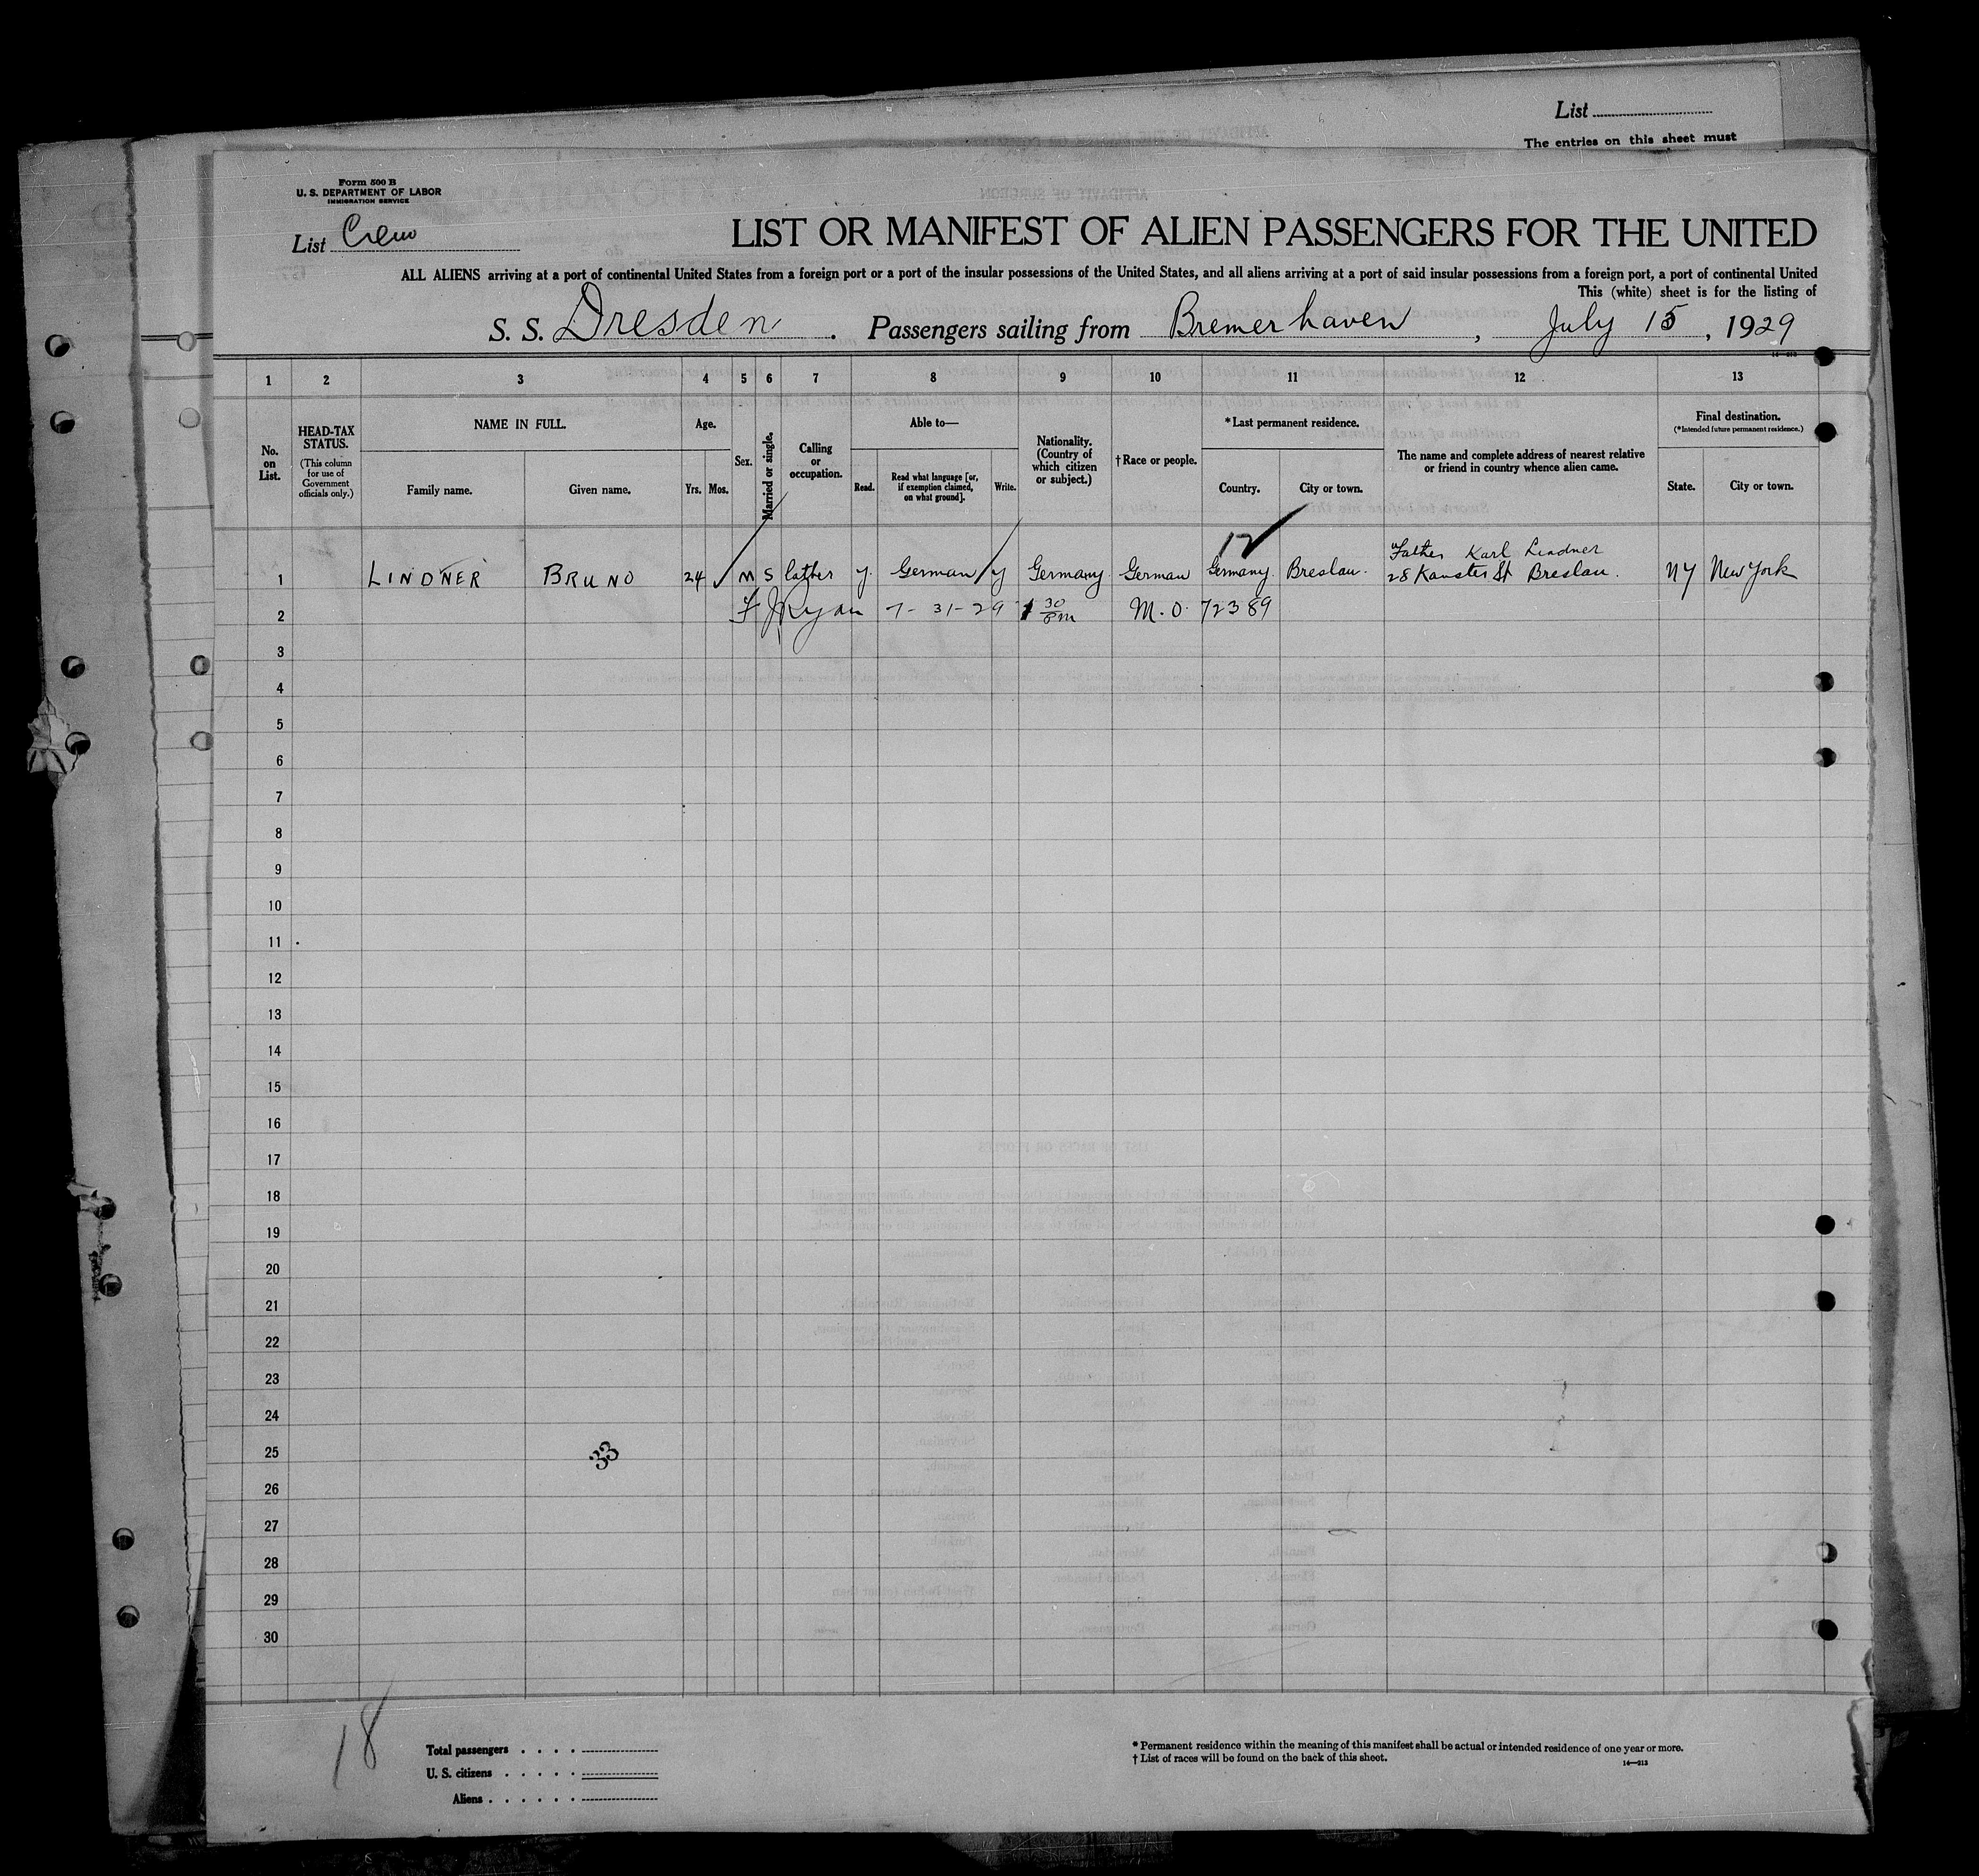 List
The entries on this sheet must
Form 500 B
U. S. DEPARTMENT OF LABOR
IMMIGRATION SERVICE
List Crew
LIST OR MANIFEST OF ALIEN PASSENGERS FOR THE UNITED
ALL ALIENS arriving at a port of continental United States from a foreign port or a port of the insular possessions of the United States, and all aliens arriving at a port of said insular possessions from a foreign port, a port of continental United
This (white) sheet is for the listing of
S. S. Dresden. Passengers sailing from Bremerhaven, July 15, 1929
1 2 3 4 5 6 7 8 9 10 11 12 13
No. on List.
HEAD-TAX STATUS.
(This column for use of Government officials only.)
NAME IN FULL.
Family name. Given name.
Age.
Yrs. Mos.
Sex.
Married or single.
Calling or occupation.
Able to—
Read. Read what language [or, if exemption claimed, on what ground]. Write.
Nationality. (Country of which citizen or subject.)
†Race or people.
*Last permanent residence.
Country. City or town.
The name and complete address of nearest relative or friend in country whence alien came.
Final destination.
(*Intended future permanent residence.)
State. City or town.
12
Father Karl Lindner
1 LINDNER BRUNO 24 M S lather y. German y Germany German Germany Breslau. 28 St Breslau. NY New York
2 F J Ryan 7-31-29 1 30 PM M.O. 72389
3
4
5
6
7
8
9
10
11
12
13
14
15
16
17
18
19
20
21
22
23
24
25
33
26
27
28
29
30
18
Total passengers . . . .
U. S. citizens . . . . .
Aliens . . . . . .
* Permanent residence within the meaning of this manifest shall be actual or intended residence of one year or more.
† List of races will be found on the back of this sheet.
14—213